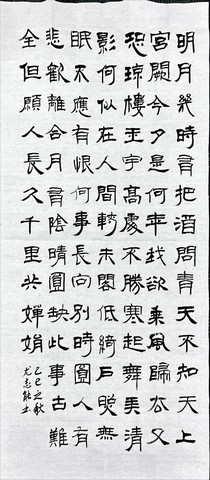 明月幾時有把酒問青天不知天上
宮闕今夕是何年我欲乘風歸去又
恐瓊樓玉宇高處不勝寒起舞弄清
影何似在人間轉朱閣低綺戶照無
眠不應有恨何事長向別時圓人有
悲歡離合月有陰晴圓缺此事古難
全但願人長久千里共嬋娟
乙巳之秋
尤志能